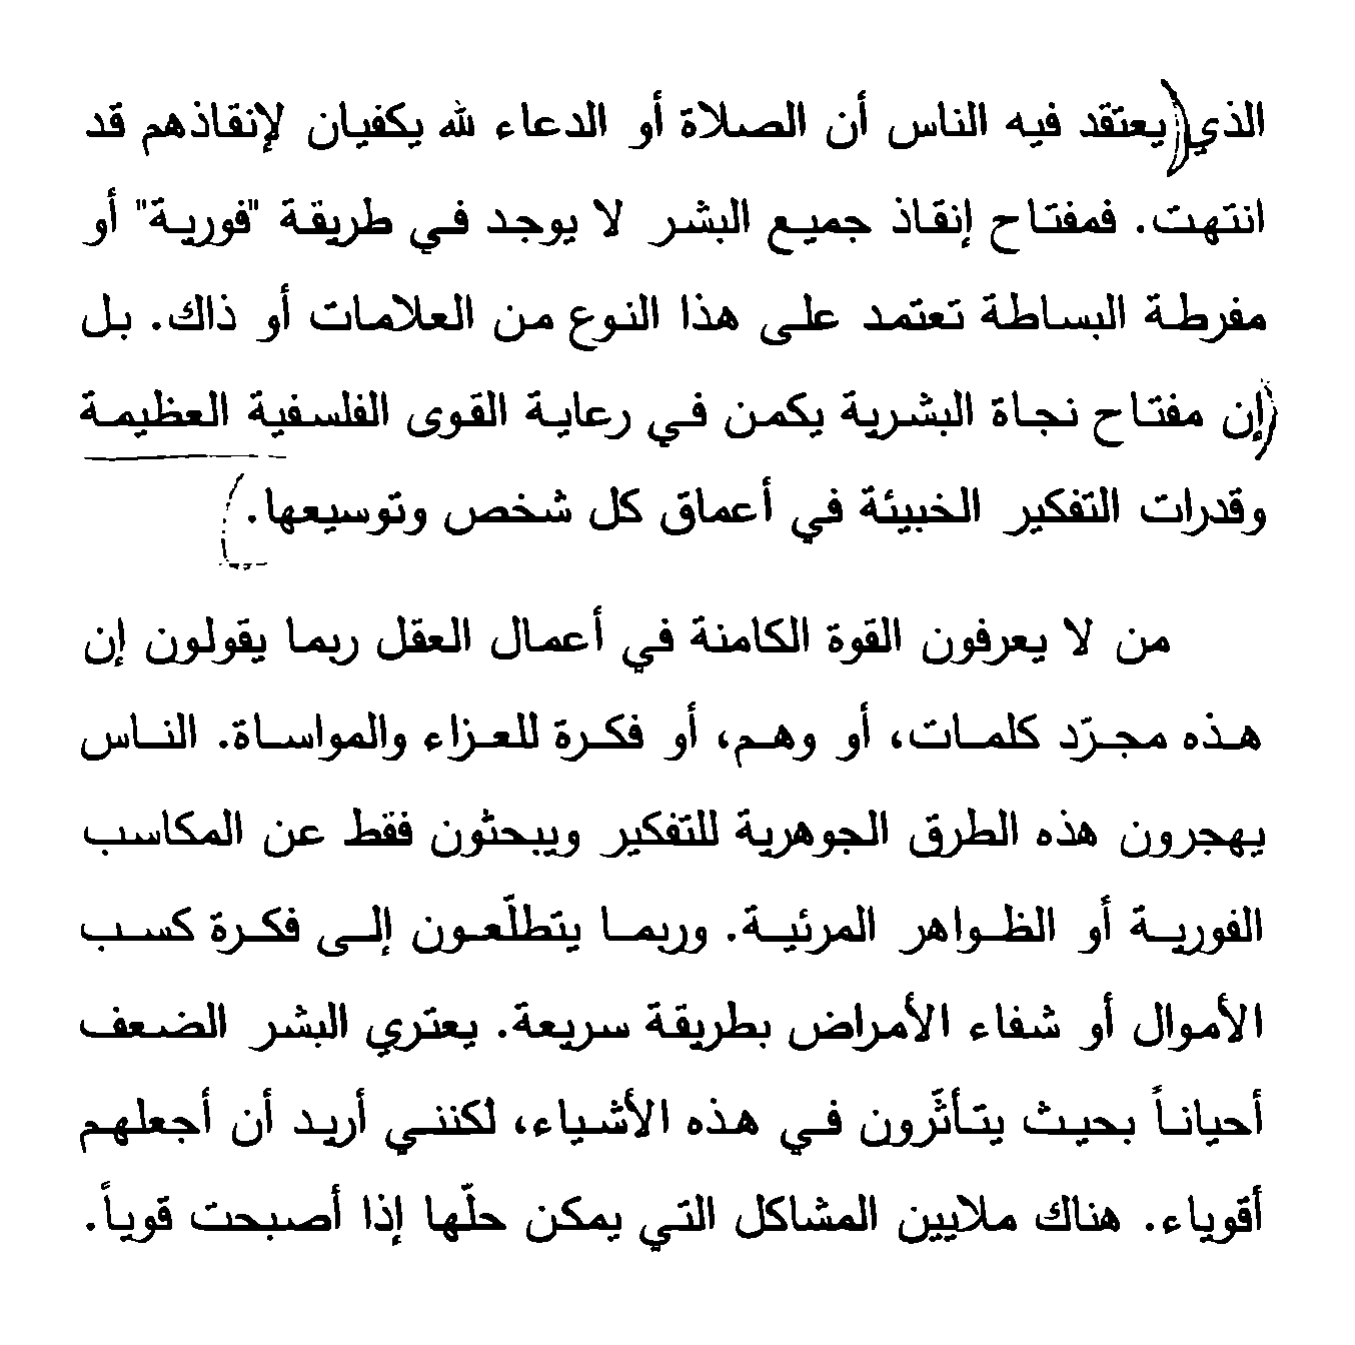 الذي يعتقد فيه الناس أن الصلاة أو الدعاء لله يكفيان لإنقاذهم قد
انتهت. فمفتاح إنقاذ جميع البشر لا يوجد في طريقة "فورية" أو
مفرطة البساطة تعتمد على هذا النوع من العلامات أو ذاك. بل
إن مفتاح نجاة البشرية يكمن في رعاية القوى الفلسفية العظيمة
وقدرات التفكير الخبيئة في أعماق كل شخص وتوسيعها.
من لا يعرفون القوة الكامنة في أعمال العقل ربما يقولون إن
هذه مجرّد كلمات، أو وهم، أو فكرة للعزاء والمواساة. الناس
يهجرون هذه الطرق الجوهرية للتفكير ويبحثون فقط عن المكاسب
الفورية أو الظواهر المرئية. وربما يتطلّعون إلى فكرة كسب
الأموال أو شفاء الأمراض بطريقة سريعة. يعتري البشر الضعف
أحياناً بحيث يتأثّرون في هذه الأشياء، لكنني أريد أن أجعلهم
أقوياء. هناك ملايين المشاكل التي يمكن حلّها إذا أصبحت قوياً.